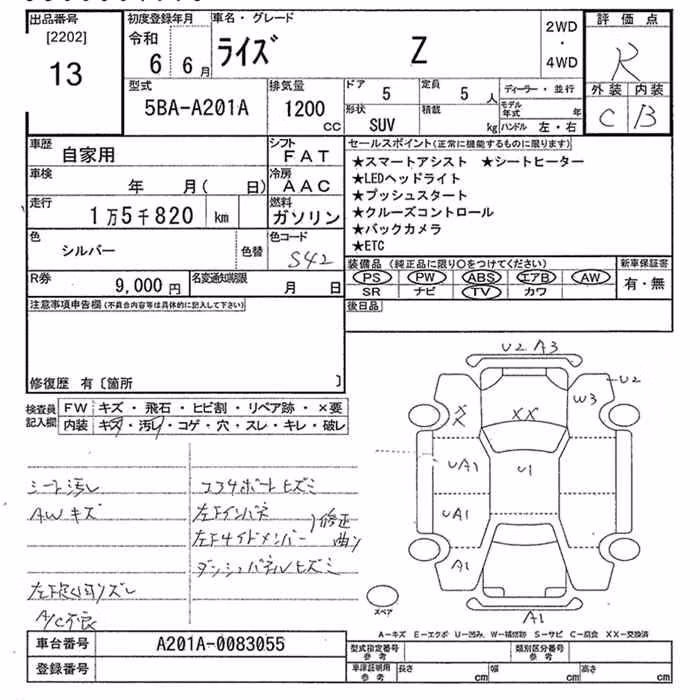 出品番号
[2202]
13
初度登録年月
令和
6 6月
車名・グレード
ライズ Z
2WD
・
4WD
評価点
R
外装 内装
C B
型式
5BA-A201A
排気量
1200
CC
ドア 5
定員 5 人
ディーラー・並行
形状
SUV
積載 kg
モデル年式 年
ハンドル 左・右
車歴 自家用
シフト
FAT
車検 年 月( 日)
冷房
AAC
走行 1万5千820 km
燃料
ガソリン
色 シルバー
色替
色コード
S42
R券 9,000円
名変通知期限 月 日
セールスポイント(正常に機能するものに限ります)
★スマートアシスト ★シートヒーター
★LEDヘッドライト
★プッシュスタート
★クルーズコントロール
★バックカメラ
★ETC
装備品 (純正品に限り○をつけてください)
新車保証書
PS PW ABS エアB AW
SR ナビ TV カワ
有・無
後日品
注意事項申告欄(不具合内容等は具体的に記入して下さい)
修復歴 有〔箇所 〕
検査員記入欄
FW キズ・飛石・ヒビ割・リペア跡・×要
内装 キズ・汚れ・コゲ・穴・スレ・キレ・破レ
シート汚レ
AWキズ
A/C不良
コアサポートヒズミ
左Fインパネ
左Fサイドメンバー
修正
曲り
ダッシュパネルヒズミ
U2 A3
U2
W3
XX
XX
UA1
U1
UA1
A1
A1
スペア
A-キズ E-エクボ U-凹み W-補修跡 S-サビ C-腐食 XX-交換済
車台番号 A201A-0083055
登録番号
型式指定番号
参考
類別区分番号
参考
車庫証明用
参考
長さ cm
幅 cm
高さ cm